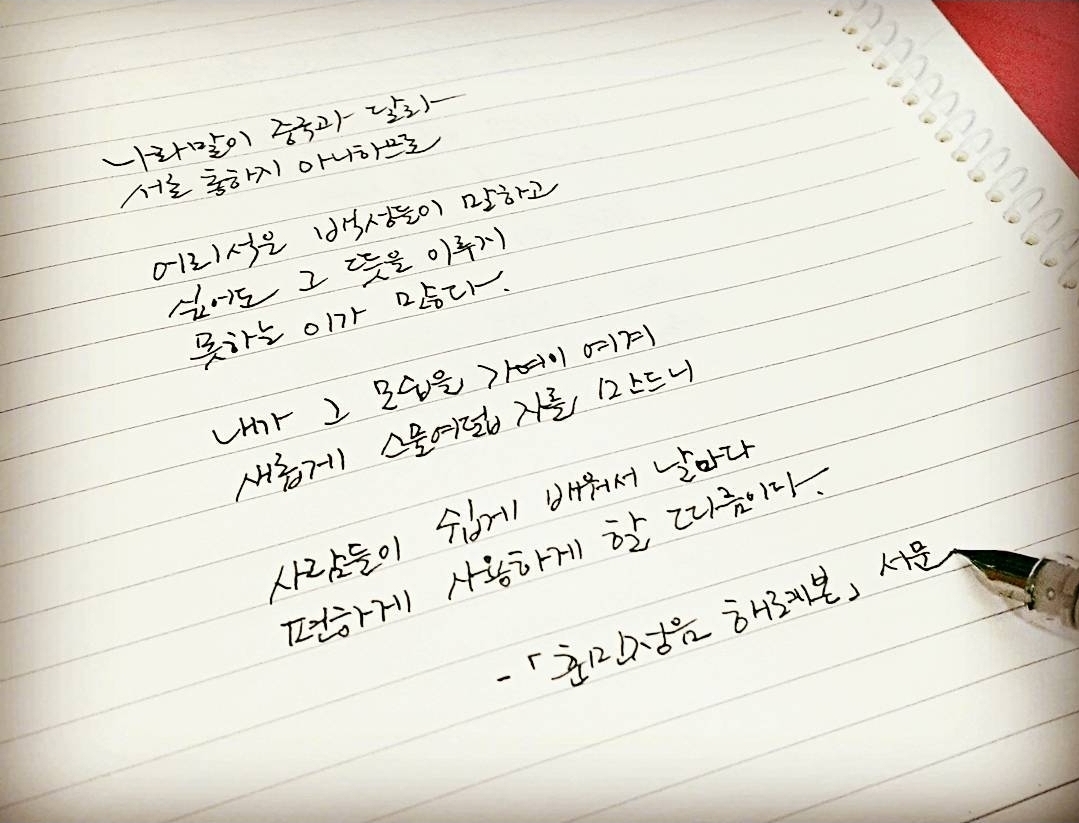 나라말이 중국과 달라
서로 통하지 아니하므로
어리석은 백성들이 말하고
싶어도 그 뜻을 이루지
못하는 이가 많다.
내가 그 모습을 가여이 여겨
새롭게 스물여덟 자를 만드니
사람들이 쉽게 배워서 날마다
편하게 사용하게 할 따름이다.
-「훈민정음 해례본」 서문